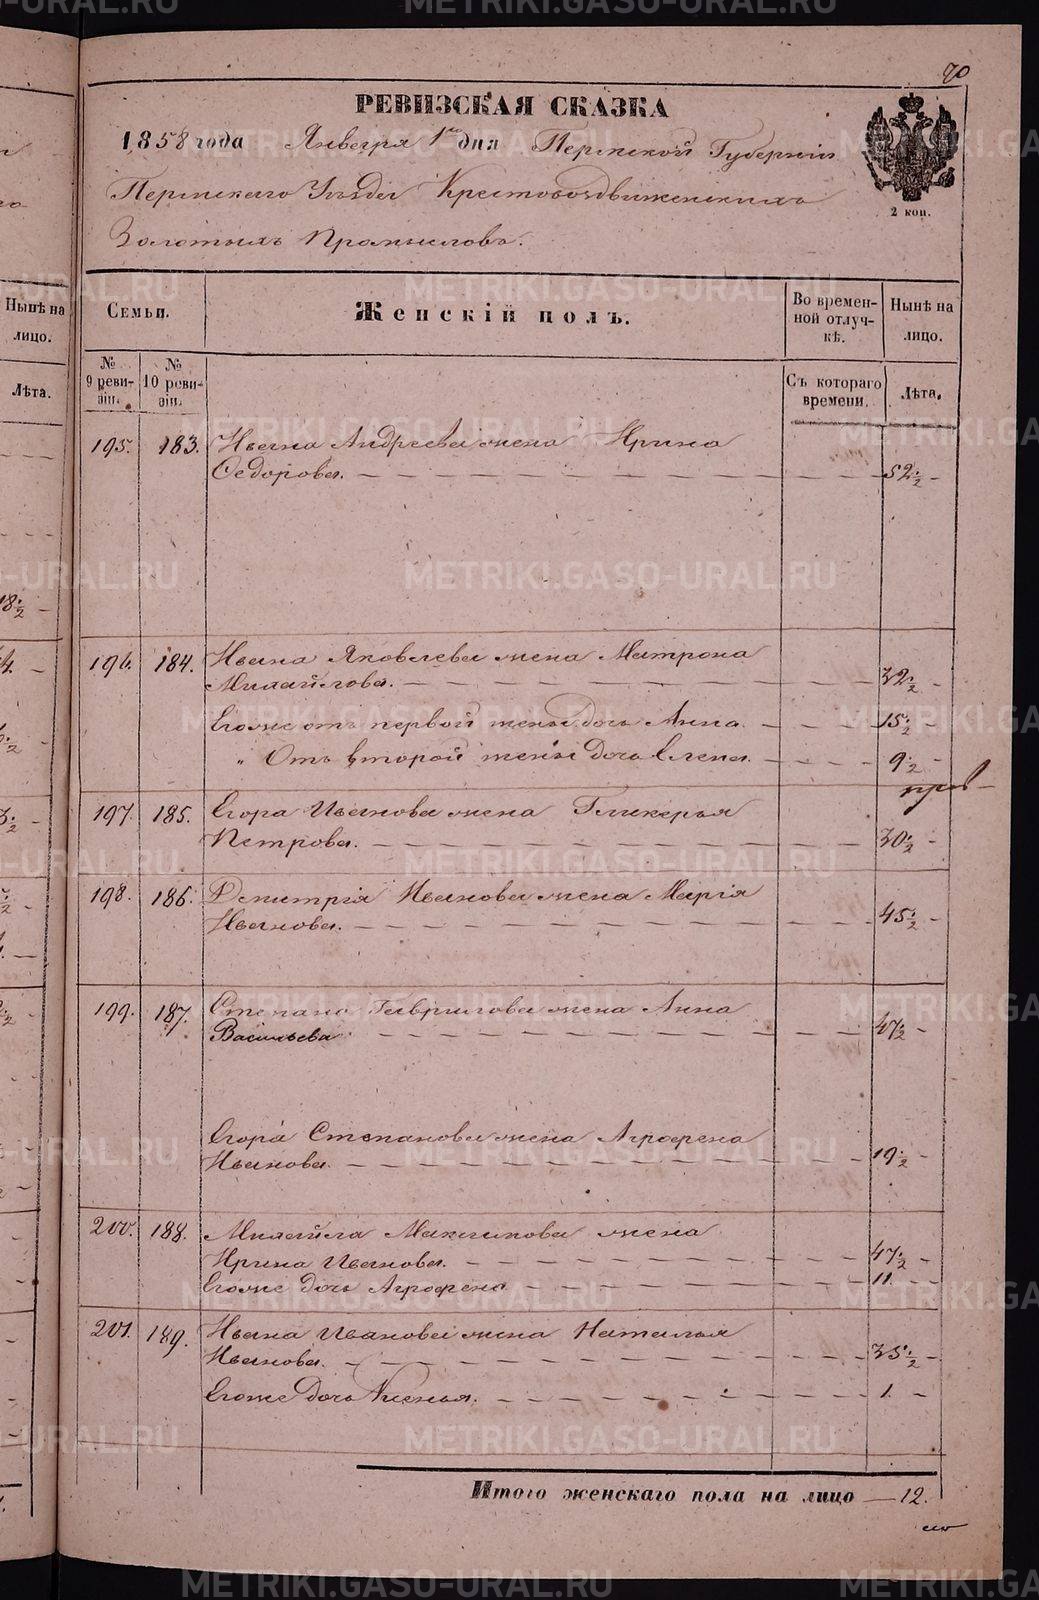 70
РЕВИЗСКАЯ СКАЗКА
1858 года Января 1го дня Пермской Губерніи
Пермскаго Уѣзда Крестовоздвиженскихъ
Золотыхъ Промысловъ.
2 коп.
Нынѣ на лицо.
Лѣта.
Семьи.
Женскій полъ.
Во временной отлучкѣ.
Нынѣ на лицо.
№ 9 ревизіи.
№ 10 ревизіи.
Съ котораго времени.
Лѣта.
195. 183. Ивана Андреева жена Ирина
Ѳедорова. 52 1/2
196. 184. Ивана Яковлева жена Матрона
Михайлова. 32 1/2
Егоже отъ первой жены дочь Анна. 15 1/2
" Отъ второй жены дочь Елена. 9 1/2
197. 185. Егора Иванова жена Гликерья
Петрова. 30 1/2
198. 186. Дмитрія Иванова жена Марія
Иванова. 45 1/2
199. 187. Степана Гаврилова жена Анна
Васильева 47 1/2
Егора Степанова жена Агрофена
Иванова. 19 1/2
200. 188. Михайла Максимова жена
Ирина Иванова. 47 1/2
Егоже дочь Агрофена 11.
201. 189. Ивана Иванова жена Наталья
Иванова. 35 1/2
Егоже дочь Ксенья. 1.
Итого женскаго пола на лицо 12.
METRIKI.GASO-URAL.RU